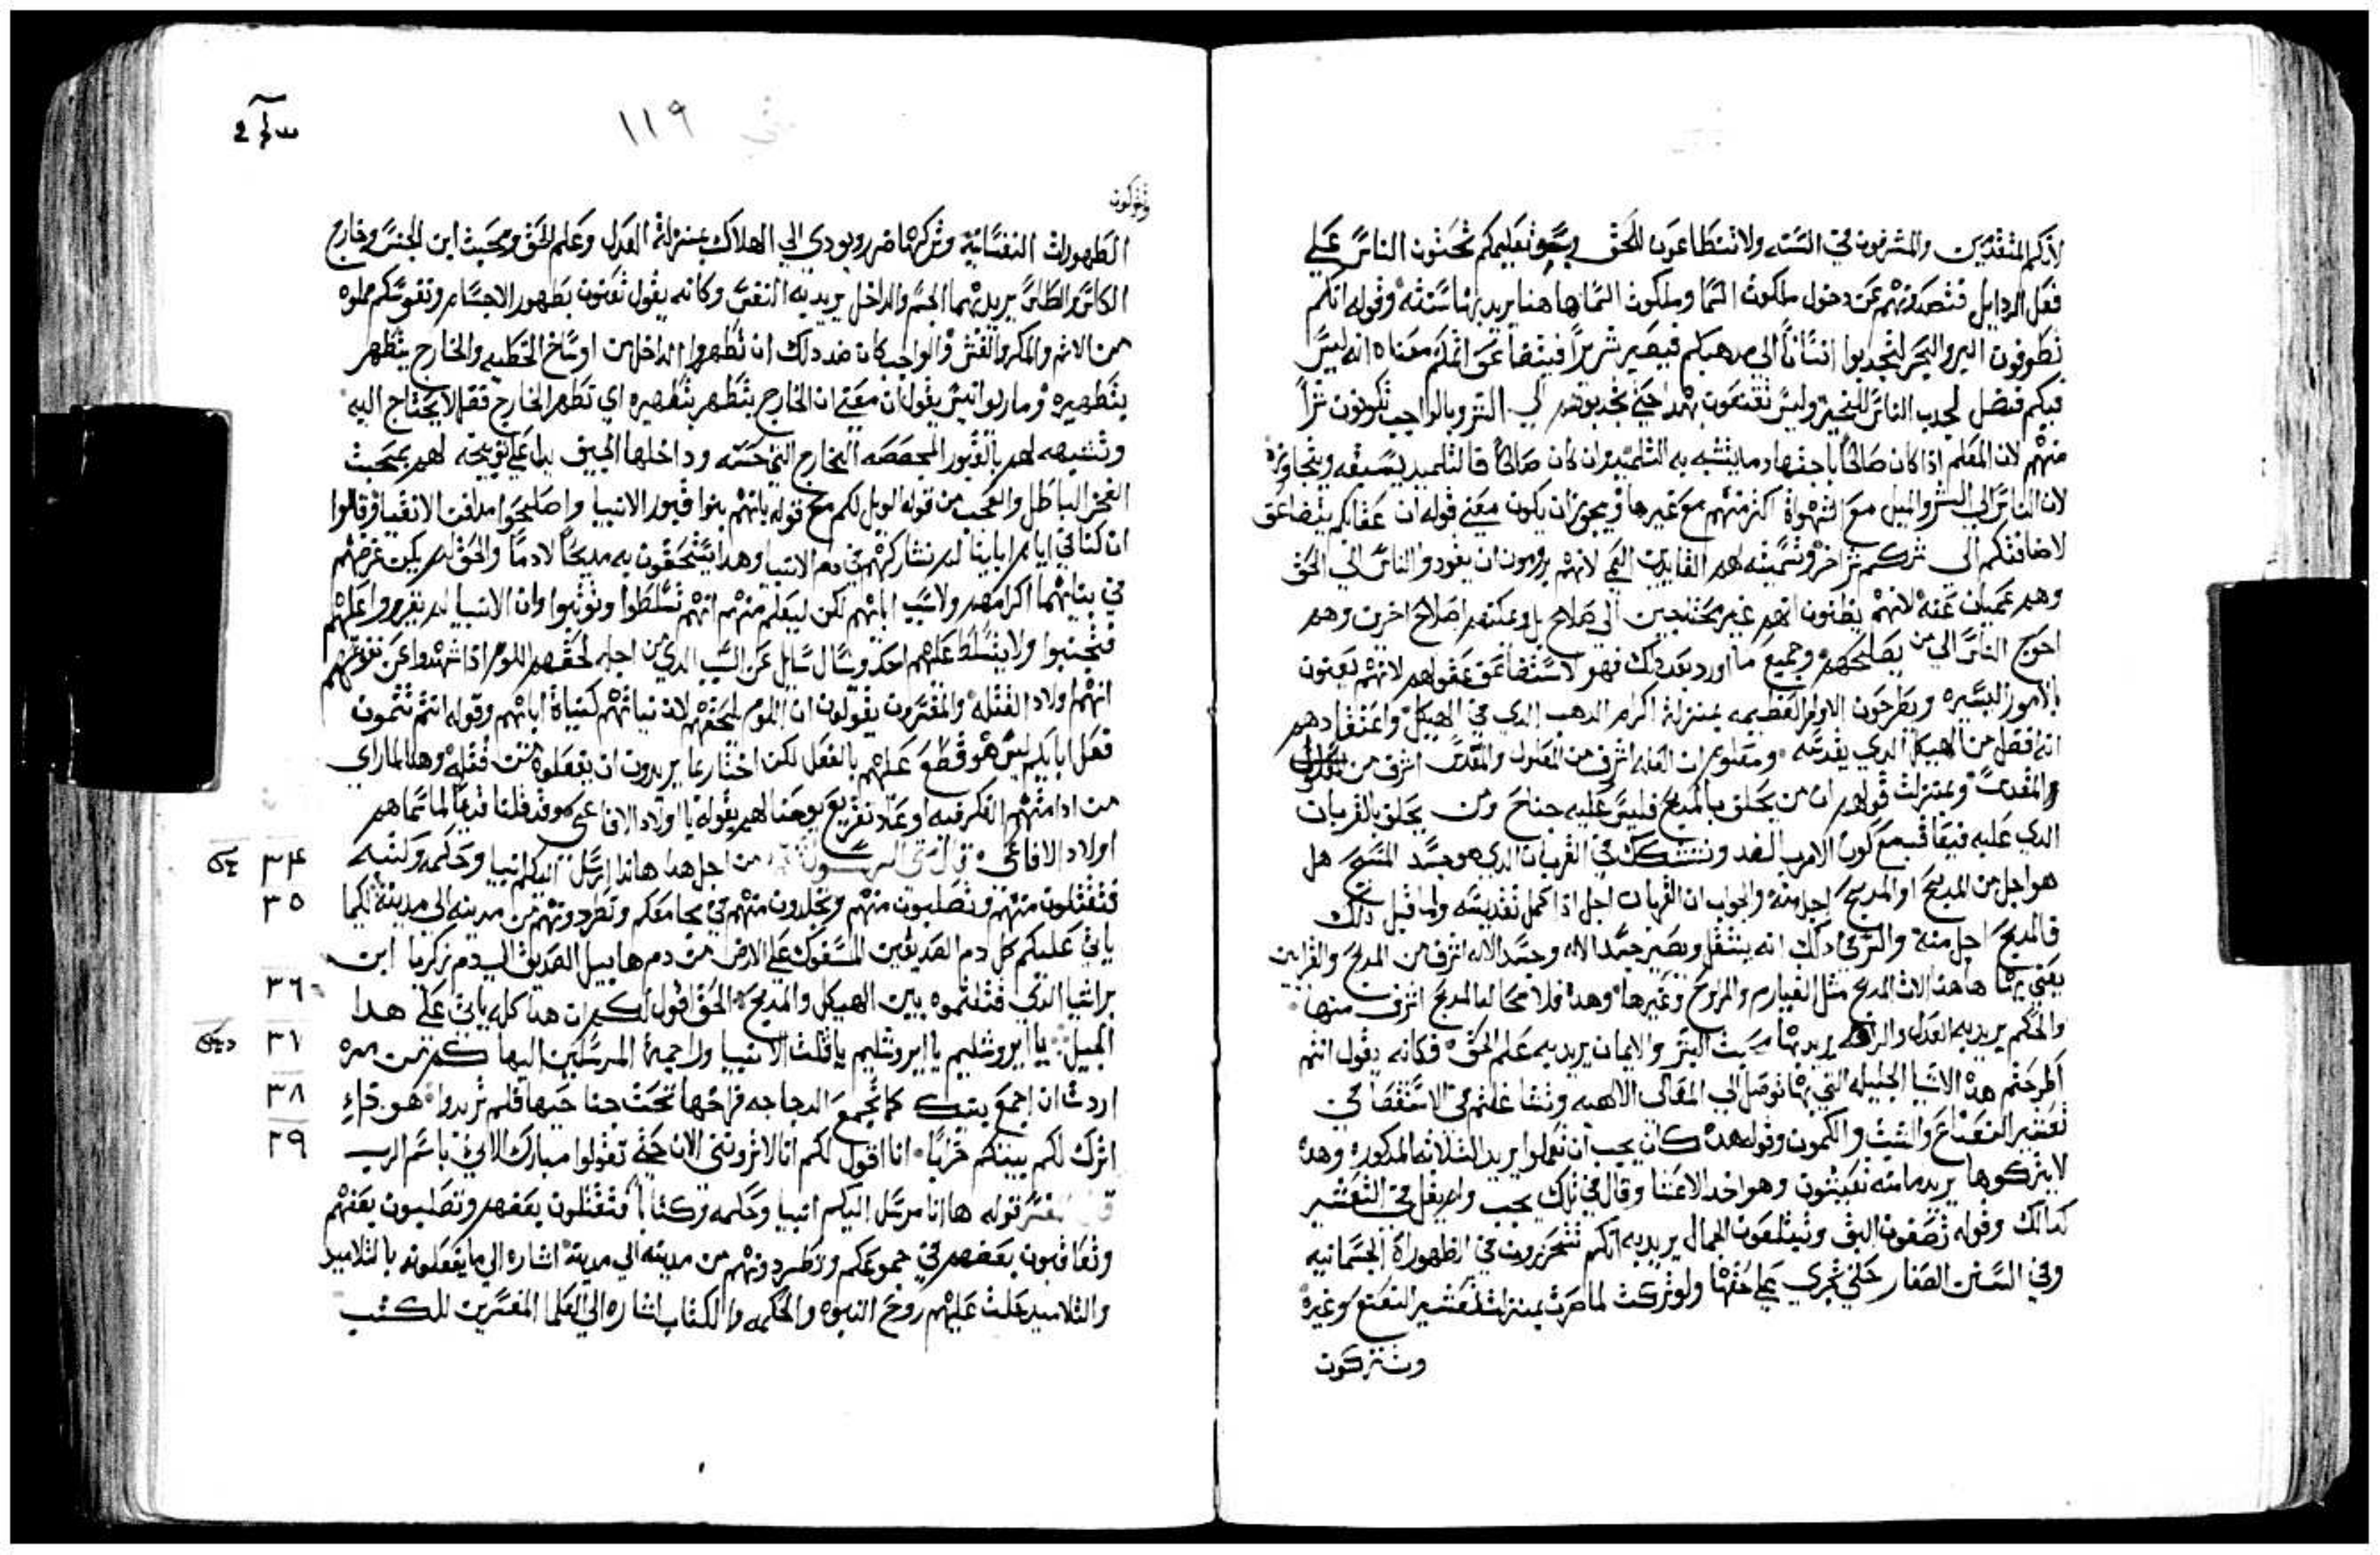 لانكم المتقدمين والمشرفون في السنه ولا تتطاعون للحق وبسو تعليمكم تحتون الناس علي
فعل الردايل فتصدونهم عن دخول ملكوت السما وملكوت السما هاهنا يريد بها سنته وقوله انكم
تطوفون البر والبحر لتجدبوا انسانا الي مدهبكم فيصير شريرا فيتضاعف اتمكم معناه انه ليس
فيكم فضل لجدب الناس للخير وليس تقنعون بهدا حتي تجدبوهم الي الشر وبالواجب تكونون شرا
منهم لان المعلم اذا كان صالحا باجتهاد ما يتشبه به التلميد وان كان طالحا فالتلميد يسبقه ويتجاوزه
لان الناس الي الشر والميل مع الشهوة اكثر منهم مع غيرها ويجوز ان يكون معني قوله ان عقابكم يتضاعف
لاضافتكم الي شركم شر اخر وتسميته لهم القايدين العمي لانهم يرومون ان يقودوا الناس الي الحق
وهم عميان عنه لانهم يظنون انهم غير محتاجين الي صلاح بل ويمكنهم اصلاح اخرين وهم
احوج الناس الي من يصلحهم وجميع ما اورد بعد دلك فهو لاستضاعف عقولهم لانهم يعنون
بالامور اليسيره ويطرحون الاوامر العظيمه بمنزلة اكرام الدهب الدي في الهيكل واعتقادهم
انه افضل من الهيكل الدي يقدسه ومعلوم ان العله اشرف من المعلول والمقدس اشرف من
والمقدس وبمنزلت قولهم ان من يحلف بالمدبح فليس عليه جناح ومن يحلف بالقربان
الدي عليه فيعاقب مع كون الامر بالضد ونتشكك في القربان الدي هو جسد المسيح هل
هو اجل من المدبح او المدبح اجل منه والجواب ان القربان اجل اذا كمل تقديسه ولما قبل دلك
فالمدبح اجل منه والسر في دلك انه ينتقل ويصير جسد الاله وجسد الاله اشرف من المدبح والقرابين
يعني بها هاهنا الات المدبح مثل والمراوح وغيرها وهده فلا محاله المدبح اشرف منها
والحكم يريد به العدل والرحمه يريد بها محبت البشر والايمان يريد به علم الحق فكانه يقول انتم
اطرحتم هده الاشيا الجليله التي بها نوصل الي المعالي الالاهيه وتشاغلتم في الاستقضا في
تعشير النعناع والشبت والكمون وقوله هده كان يجب ان تعملوا يريد الثلاثه المدكوره وهده
لا يتركوها يريد ما منه تعيشون وهو اخد الاعشا وقال في تلك يجب ولم يقل في التعشير
كدالك وقوله تصفون البق وتبتلعون الجمال يريد به انكم تتحررون في الطهوراة الجسمانيه
وفي السنن الصغار حتي تجري علي حقها ولو تركت لما ضرت بمنزلت تعشير النعنع وغيره
وتتركون
١١٩
وتتركون
الطهورات النفسانيه وتركها ضرر ويودي الي الهلاك بمنزلة العدل وعلم الحق ومحبت ابن الجنس وخارج
الكاس والطاس يريد بهما الجسم والداخل يريد به النفس وكانه يقول تعنون بطهور الاجسام ونفوسكم مملوه
من الاثم والمكر والغش والواجب كان ضد دلك ان تطهروا الداخل من اوساخ الخطيه والخارج يتطهر
بتطهيره ومار يوانيس يقول ان معني ان الخارج يتطهر بتطهيره اي تطهر الخارج فقط لا يحتاج اليه
وتشبيهه لهم بالقبور المجصصه الخارج التي حسنه وداخلها الجيف يدل علي توبيخه لهم بمحبت
الفخر الباطل والعجب من قوله الويل لكم مع قوله بانهم بنوا قبور الانبيا واصلحوا مدافن الاتقيا وقالوا
ان كنا في ايام ابآينا لم نشاركهم في دم الانبيا وهدا يستحقون به مديحا لا دما والحق لم يكن غرضهم
في بنايهما اكرامهم ولا سب ابايهم لكن ليعلم منهم انهم تسلطوا وتوثبوا وان الانبيا لم يقرروا عملهم
فتجنبوا ولا يتسلط عليهم احد وسال سايل عن السبب الدي من اجله لحقهم اللوم اذا شهدوا عن نفوسهم
انهم اولاد القتله والمفسرون يقولون ان اللوم لحقهم لان نياتهم كنياة ابايهم وقوله انتم تتمون
فعل ابايكم ليس هو قطع عليهم بالفعل لكن اختار بما يريدون ان يفعلوه من قتله وهدا لما راي
من ادامتهم الفكر فيه او عاد تقريع يوحنا لهم بقوله يا اولاد الافاعي وقد قلنا قديما لما سماهم
اولاد الافاعي من اجل هدا هاندا ارسل اليكم انبيا وحكمه وكتبه
٣٤
فتقتلون منهم وتصلبون منهم وتجلدون منهم في مجامعكم وتطردونهم من مدينه الي مدينة لكيما
٣٥
ياتي عليكم كل دم الصديقين المسفوك علي الارض من دم هابيل الصديق الي دم زكريا ابن
براشيا الدي قتلتموه بين الهيكل والمدبح الحق اقول لكم ان هدا كله ياتي علي هدا
٣٦
الجيل يا ايروشليم يا ايروشليم يا قاتلت الانبيا وراجمة المرسلين اليها كم من مره
٣٧
اردت ان اجمع بنيك كما تجمع الدجاجه فراخها تحت جناحيها فلم تريدوا هودا
٣٨
اترك لكم بيتكم خرابا انا اقول لكم انا لا تروني الان حتي تقولوا مبارك الاتي باسم الرب
٣٩
قال المفسر قوله ها انا مرسل اليكم انبيا وحكمه وكتابا فتقتلون بعضهم وتصلبون بعضهم
وتعاقبون بعضهم في جموعكم وتطردونهم من مدينه الي مدينة اشاره الي ما يفعلونه بالتلاميد
والتلاميد حلت عليهم روح النبوه والحكمه والكتاب اشاره الي العلما المفسرين للكتب